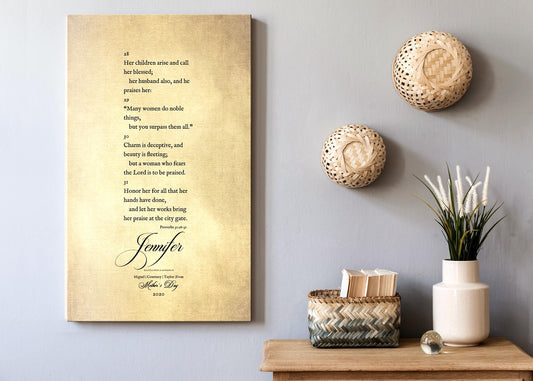 28
Her children arise and call
her blessed;
her husband also, and he
praises her:
29
"Many women do noble
things,
but you surpass them all."
30
Charm is deceptive, and
beauty is fleeting;
but a woman who fears
the Lord is to be praised.
31
Honor her for all that her
hands have done,
and let her works bring
her praise at the city gate.
Proverbs 31:28-31
Jennifer
Courtney | Taylor
Mother's Day
2020